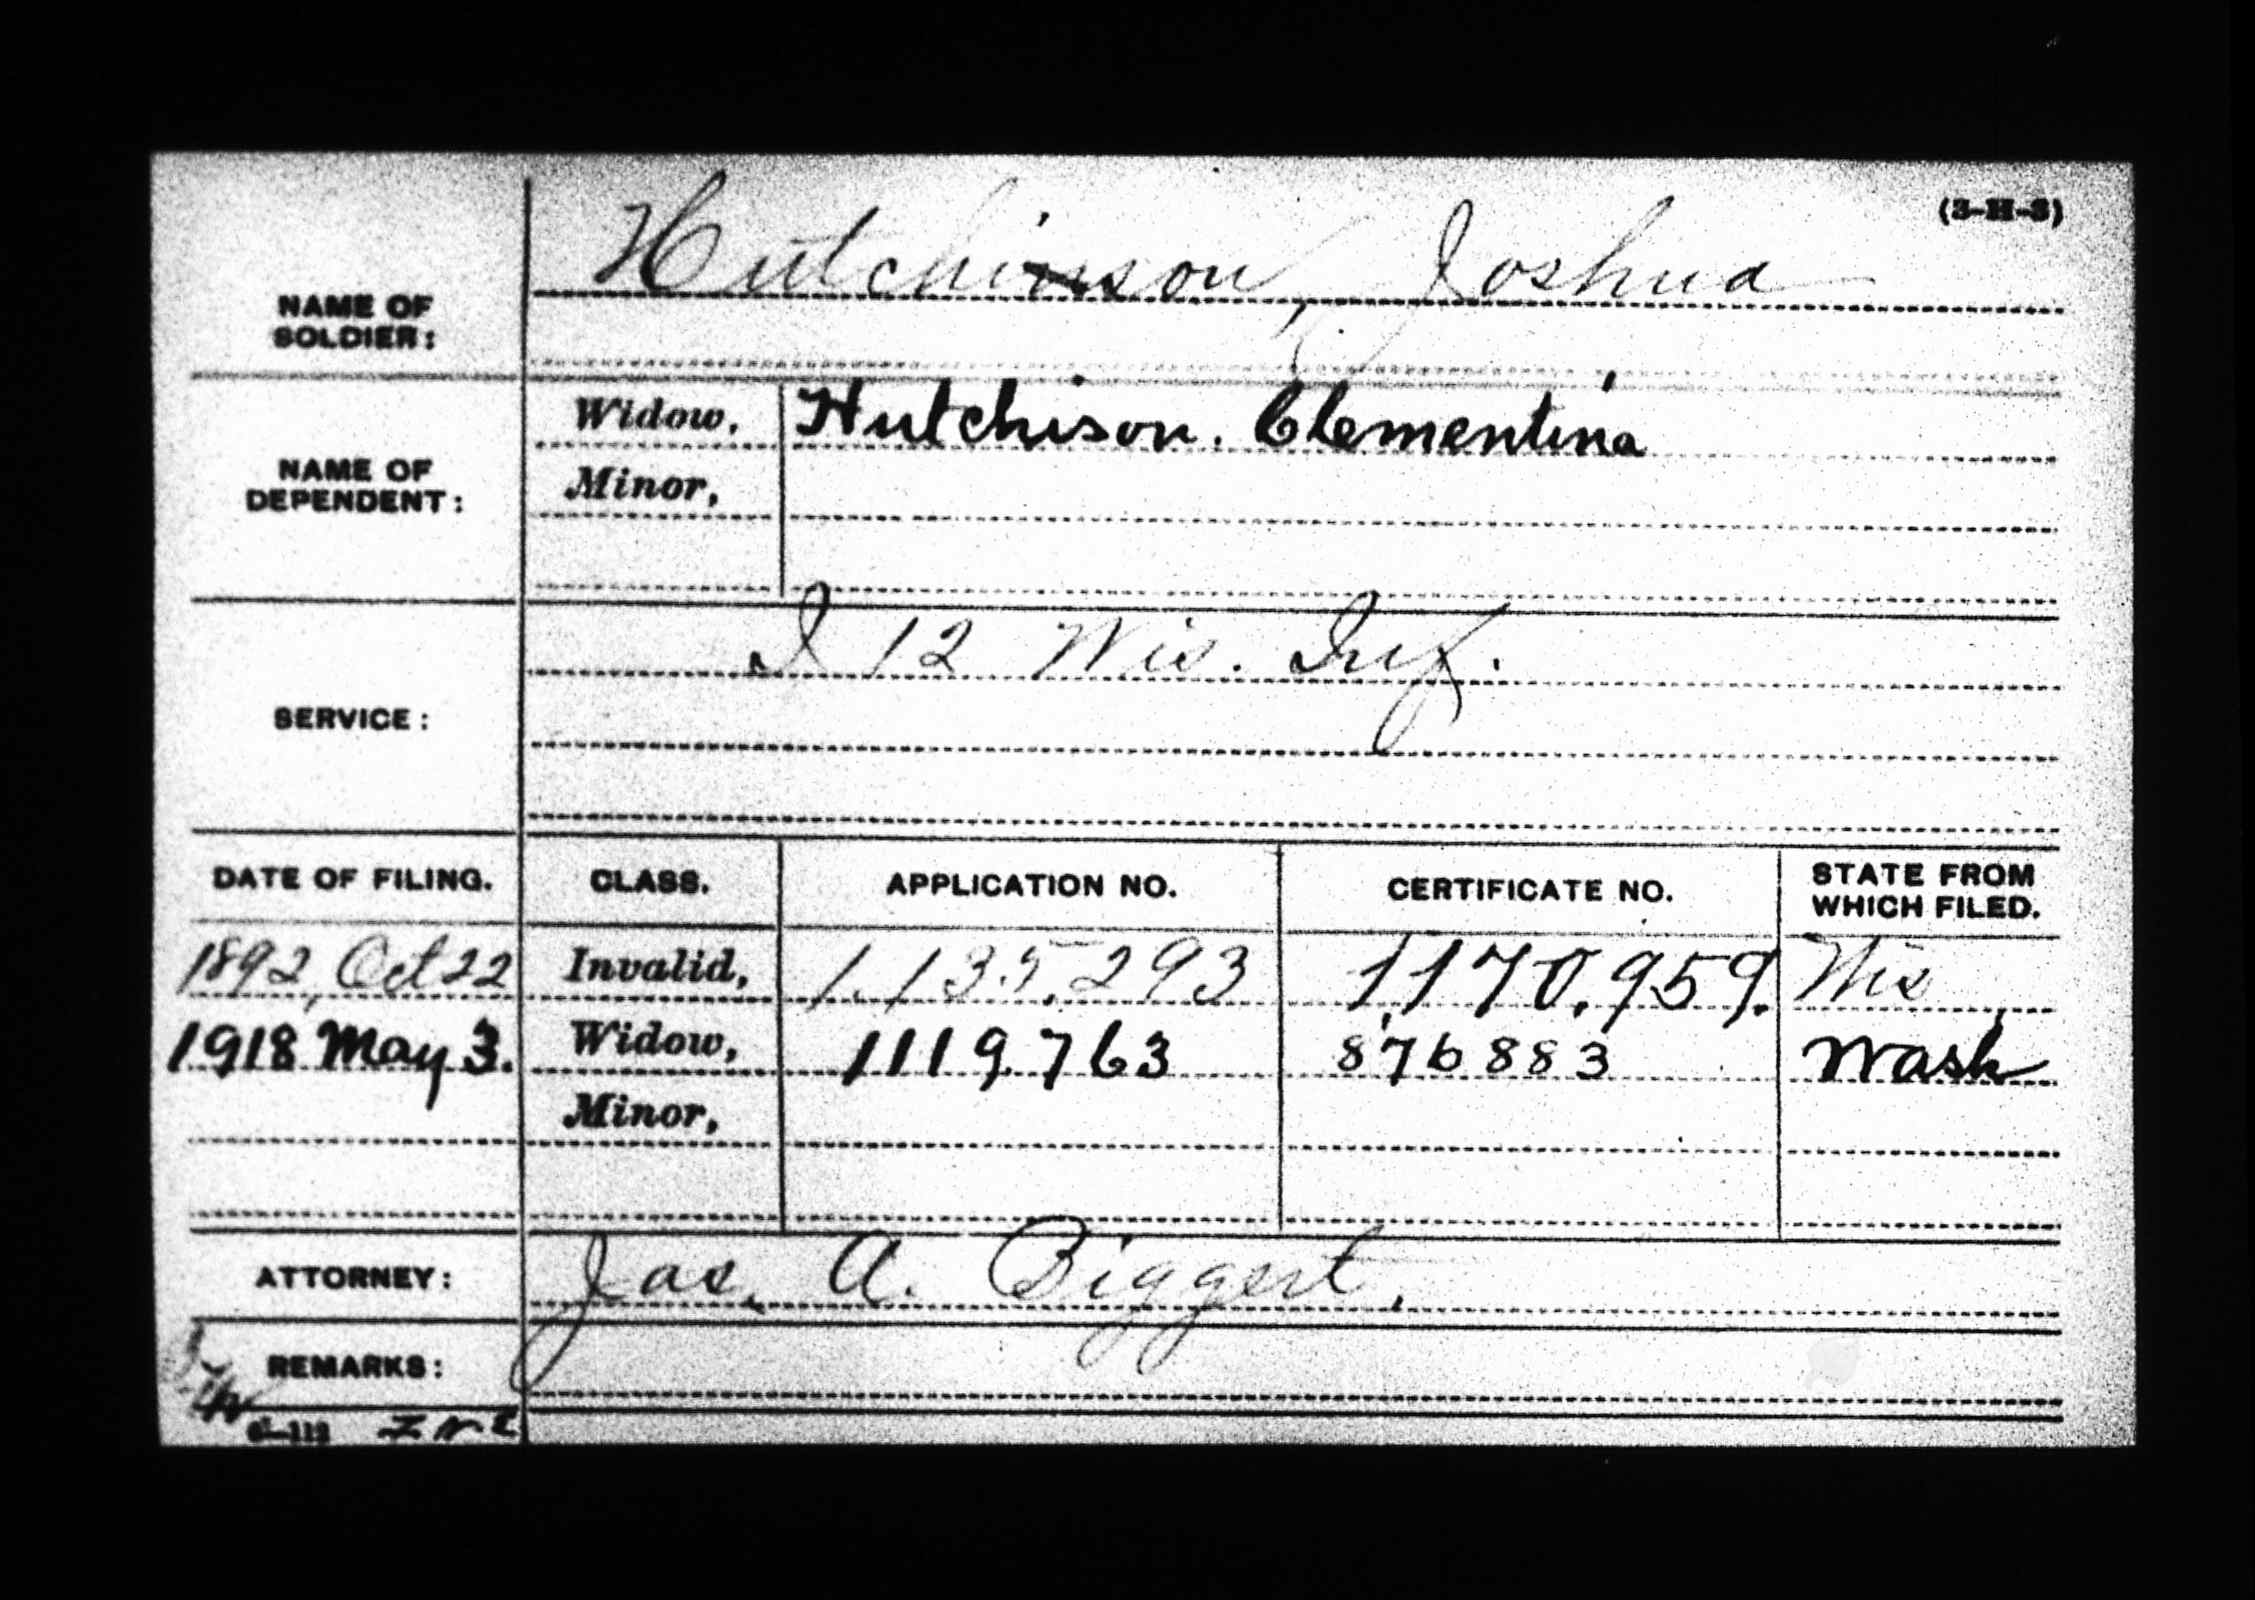 (3-H-3)
NAME OF SOLDIER: Hutchinson, Joshua
NAME OF DEPENDENT: Widow, Hutchison. Clementina
Minor,
SERVICE: I 12 Wis. Inf.
DATE OF FILING. CLASS. APPLICATION NO. CERTIFICATE NO. STATE FROM WHICH FILED.
1892, Oct 22 Invalid, 1.135.293 1,170,959. Wis
1918 May 3. Widow, 1119.763 876883 Wash
Minor,
ATTORNEY: Jas. A. Biggert.
REMARKS: